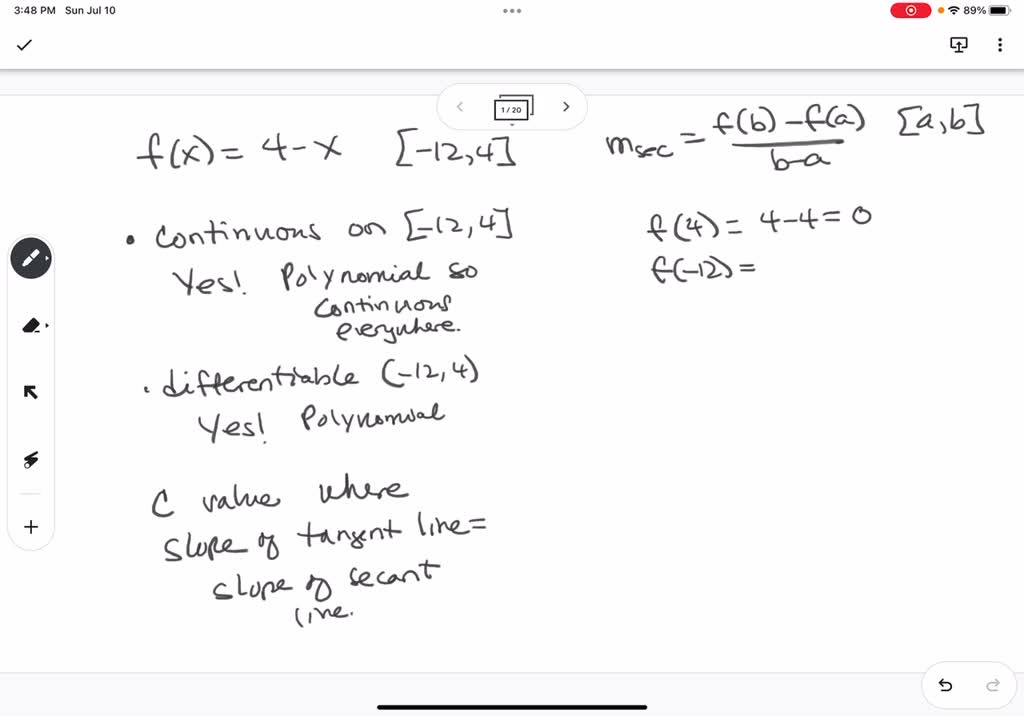 3:48 PM Sun Jul 10
89%
1 / 20
f(x) = 4 - x [-12, 4]
• Continuous on [-12, 4]
Yes! Polynomial so
continuous
everywhere.
• differentiable (-12, 4)
Yes! Polynomial
C value where
slope of tangent line =
slope of secant
line.
m_sec = f(b) - f(a) / b-a [a, b]
f(4) = 4-4 = 0
f(-12) =